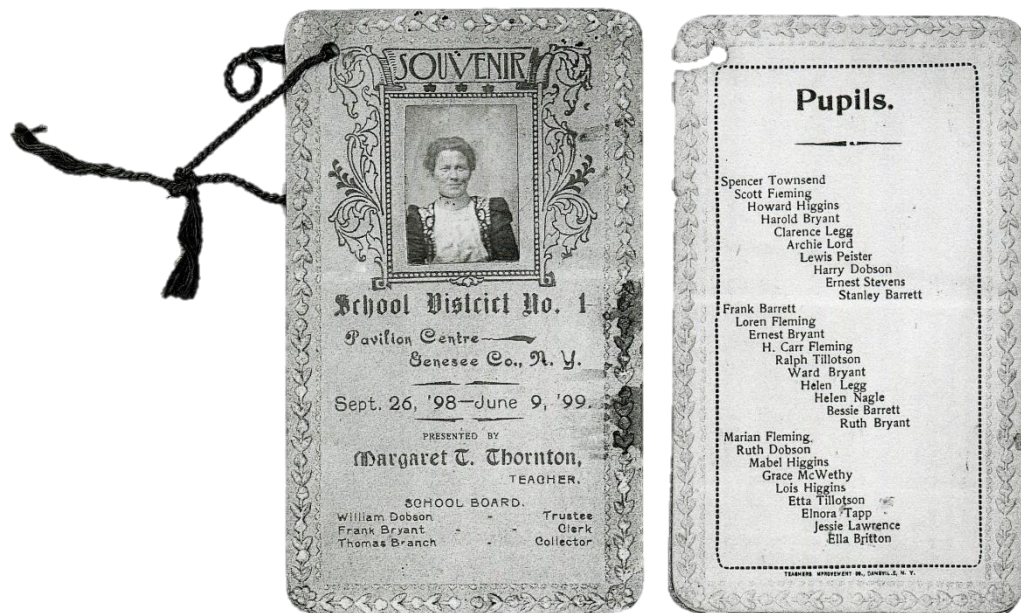 SOUVENIR
School District No. 1
Pavilion Centre
Genesee Co., N. Y.
Sept. 26, '98—June 9, '99.
PRESENTED BY
Margaret T. Thornton,
TEACHER.
SCHOOL BOARD.
William Dobson - Trustee
Frank Bryant - - Clerk
Thomas Branch - Collector
Pupils.
Spencer Townsend
Scott Fleming
Howard Higgins
Harold Bryant
Clarence Legg
Archie Lord
Lewis Peister
Harry Dobson
Ernest Stevens
Stanley Barrett
Frank Barrett
Loren Fleming
Ernest Bryant
H. Carr Fleming
Ralph Tillotson
Ward Bryant
Helen Legg
Helen Nagle
Bessie Barrett
Ruth Bryant
Marian Fleming
Ruth Dobson
Mabel Higgins
Grace McWethy
Lois Higgins
Etta Tillotson
Elnora Tapp
Jessie Lawrence
Ella Britton
TEACHERS IMPROVEMENT CO., DANSVILLE, N. Y.